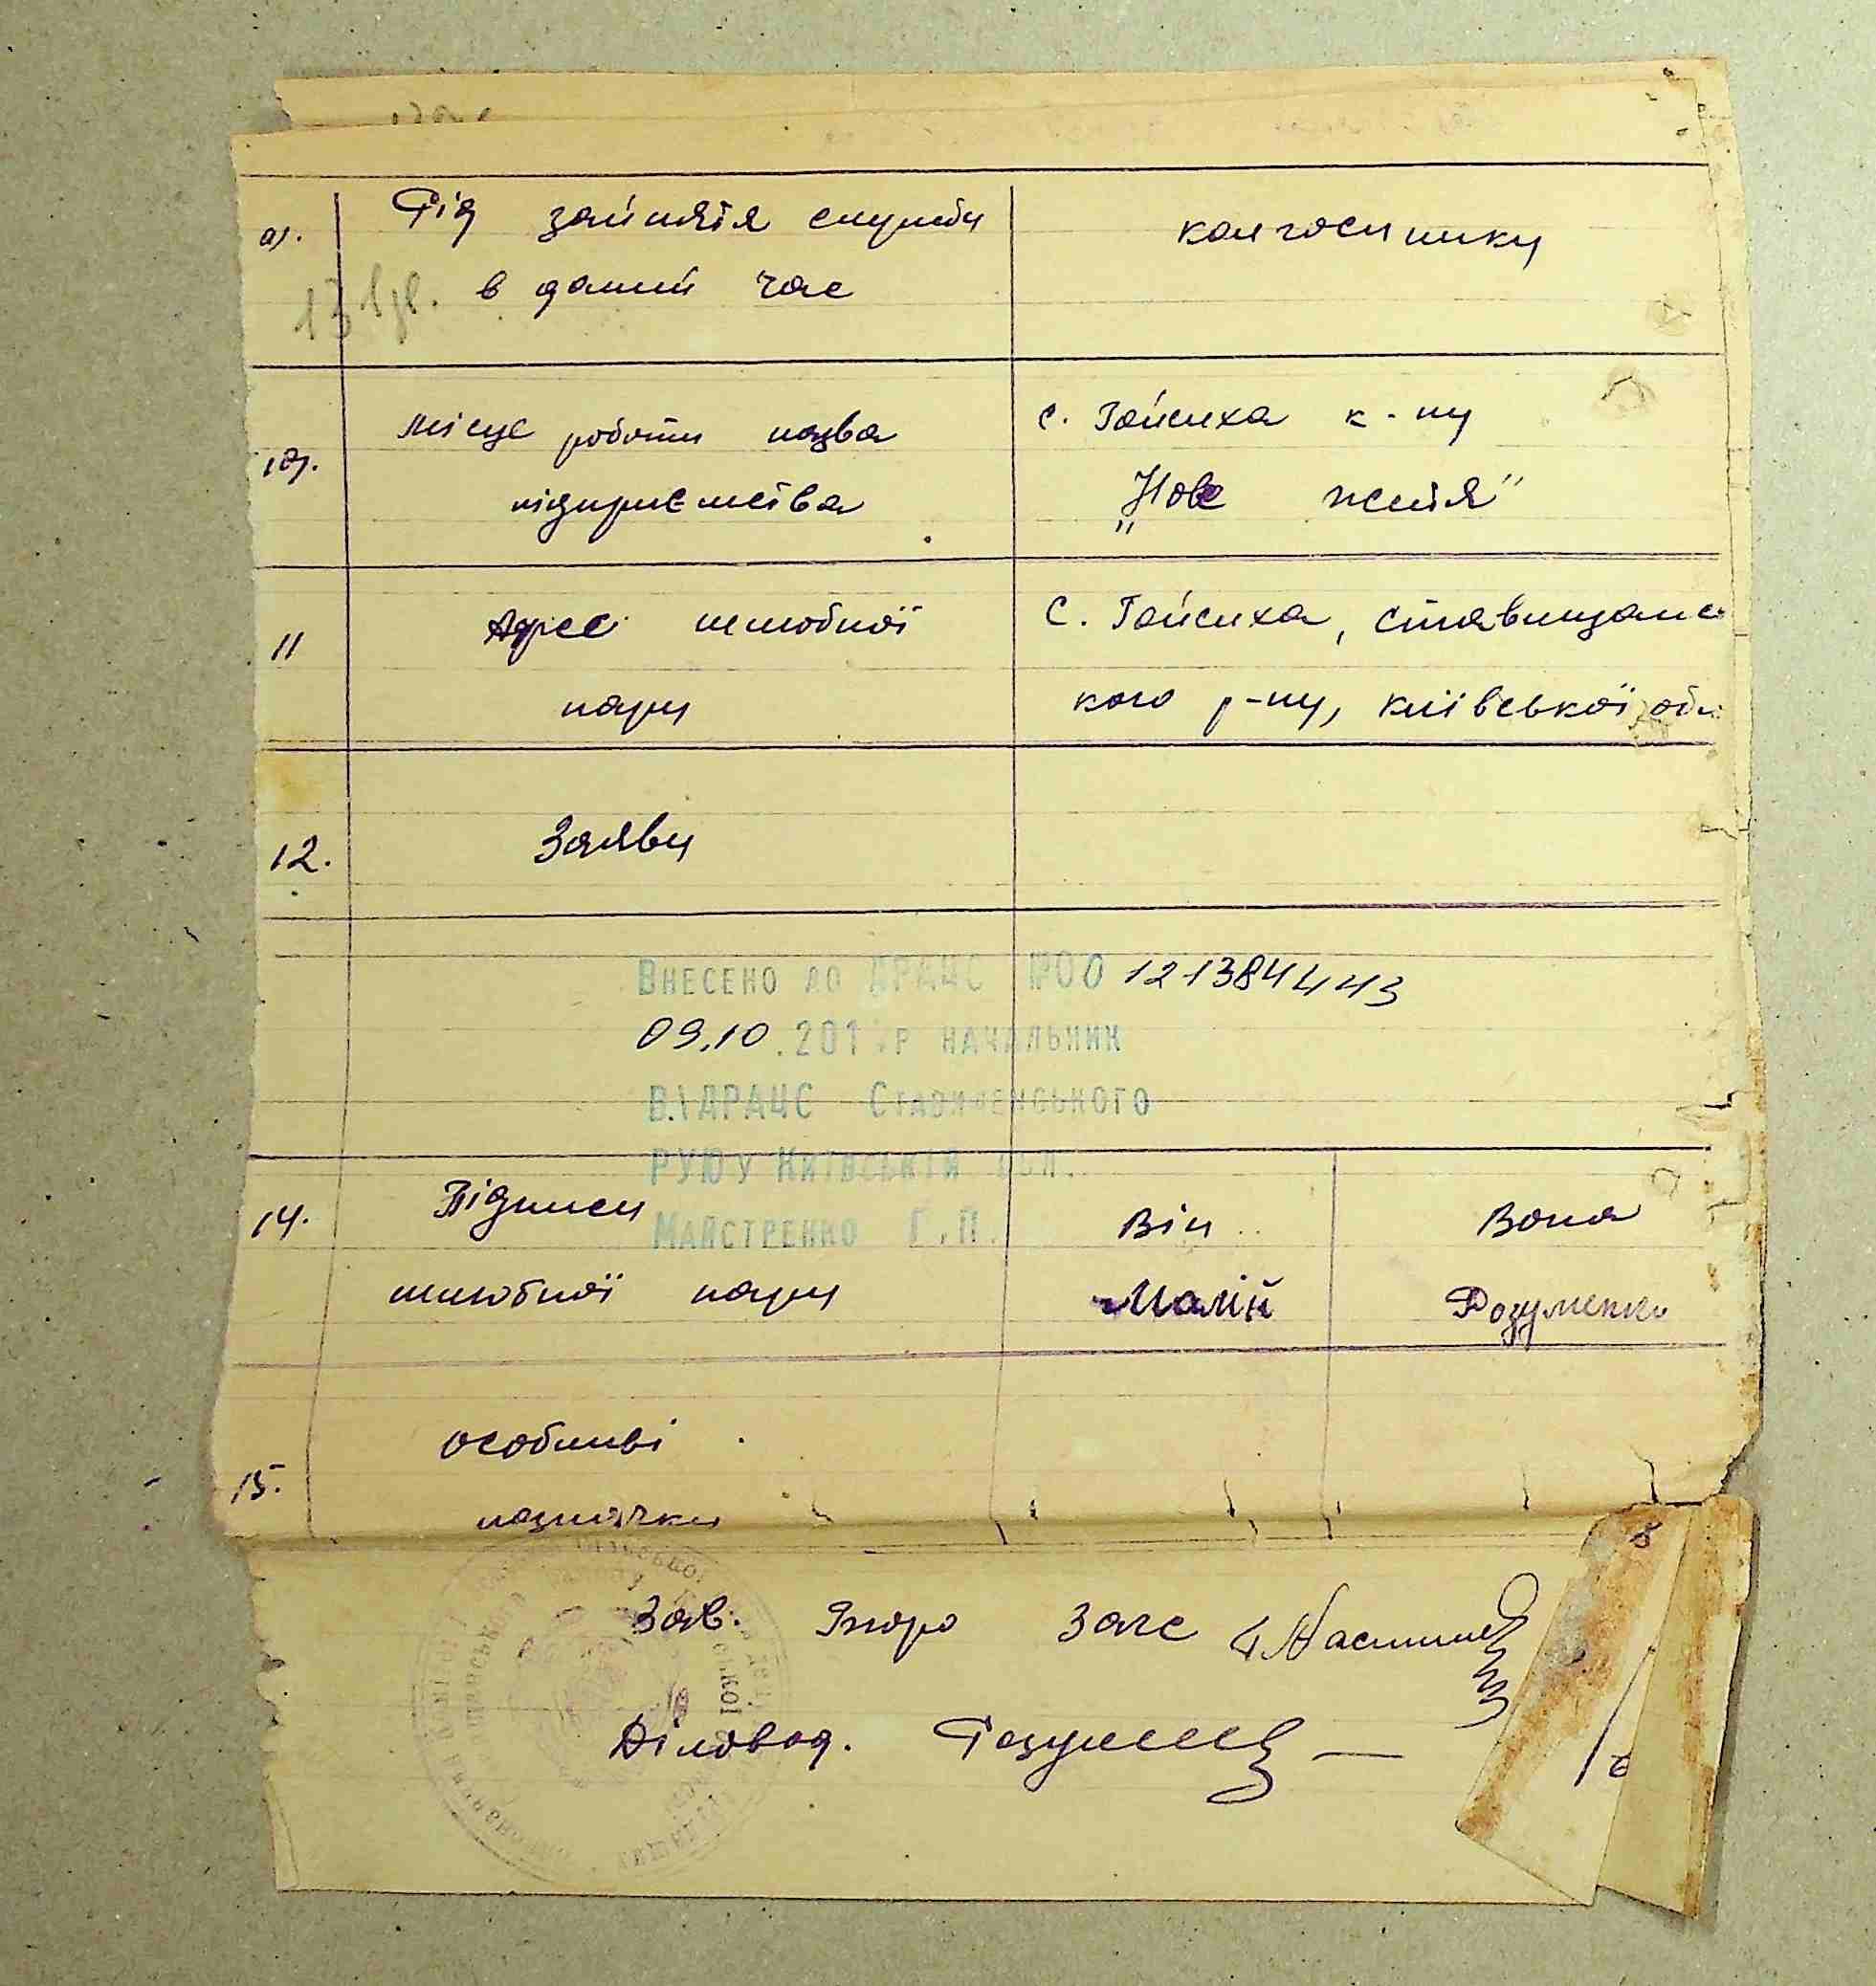 9. Рід зайняття служби колгоспнику
в даний час
10. Місце роботи назва с. Гайсиха к-пу
підприємства „Нове життя"
11 Адрес шлюбної с. Гайсиха, Ставищанс
пари кого р-ну, Київської обл
12. Заяви
Внесено до ДРАЦС №00 1213844443
09.10.201 р начальник
В.ДРАЦС Ставищенського
РУЮ у Київській обл.
Майстренко Г.П.
14. Підписи Він Вона
шлюбної пари Малій Розуменко
15. особливі
позначки
Зав. Бюро Загс
Діловод.